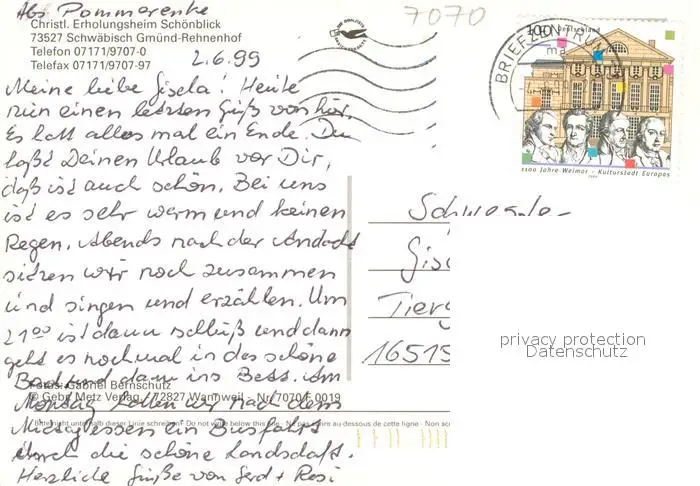 Abs. Pommerenke
Christl. Erholungsheim Schönblick
73527 Schwäbisch Gmünd-Rehnenhof
Telefon 07171/9707-0
Telefax 07171/9707-97
2.6.99
7070
100 Deutschland
BRIEFZENTRUM
1100 Jahre Weimar - Kulturstadt Europas
Meine liebe Gisela! Heute
nun einen letzten Gruß von hier.
Es hat alles mal ein Ende. Du
haßt Deinen Urlaub vor Dir,
daß ist auch schön. Bei uns
ist es sehr warm und keinen
Regen. Abends nach der Andacht
sitzen wir noch zusammen
und singen und erzählen. Um
21⁰⁰ ist dann schluß und dann
geht es nochmal in das schöne
Bad und dann ins Bett. Am
Fotos: Gabriel Bernschutz
© Gebr. Metz Verlag, 72827 Wannweil - Nr. 7070 F 0019
Montag hatten wir nach dem
Bitte nicht unterhalb dieser Linie schreiben - Do not write below this line - Ne pas écrire au dessous de cette ligne - Non
Mittagessen ein Busfahrt
durch die schöne Landschaft.
Herzliche Grüße von Gerd + Rosi
Schwester
Gis
Tierg
16515
privacy protection
Datenschutz